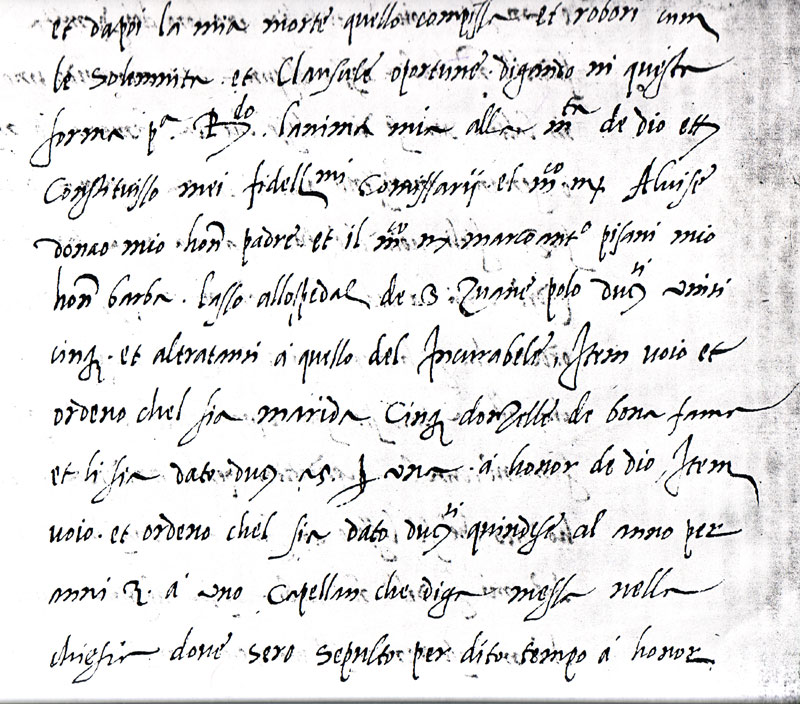 et dapoi la mia morte quello compissa et robori cum
le solennita et Clausule oportune digando in questa
forma pª. Rdo. lanima mia alla mta de dio et
Constituisso mei fidellmi Comissarij et mco mr Aluise
donao mio hon padre et il mco mr marcantº pisani mio
hon barba. lasso allospedal de S. Zuane polo ducti vinti
cinq. et altratanti a quello del Incurabele, Item voio et
ordeno chel sia marida Cinq donzelle de bona fama
et li sia dato duc 25. p una a honor de dio, Item
voio et ordeno chel sia dato ducti quindese al anno per
anni 2. a uno Capellan che diga messa nella
chiesia doue sero sepulto per dito tempo a honor